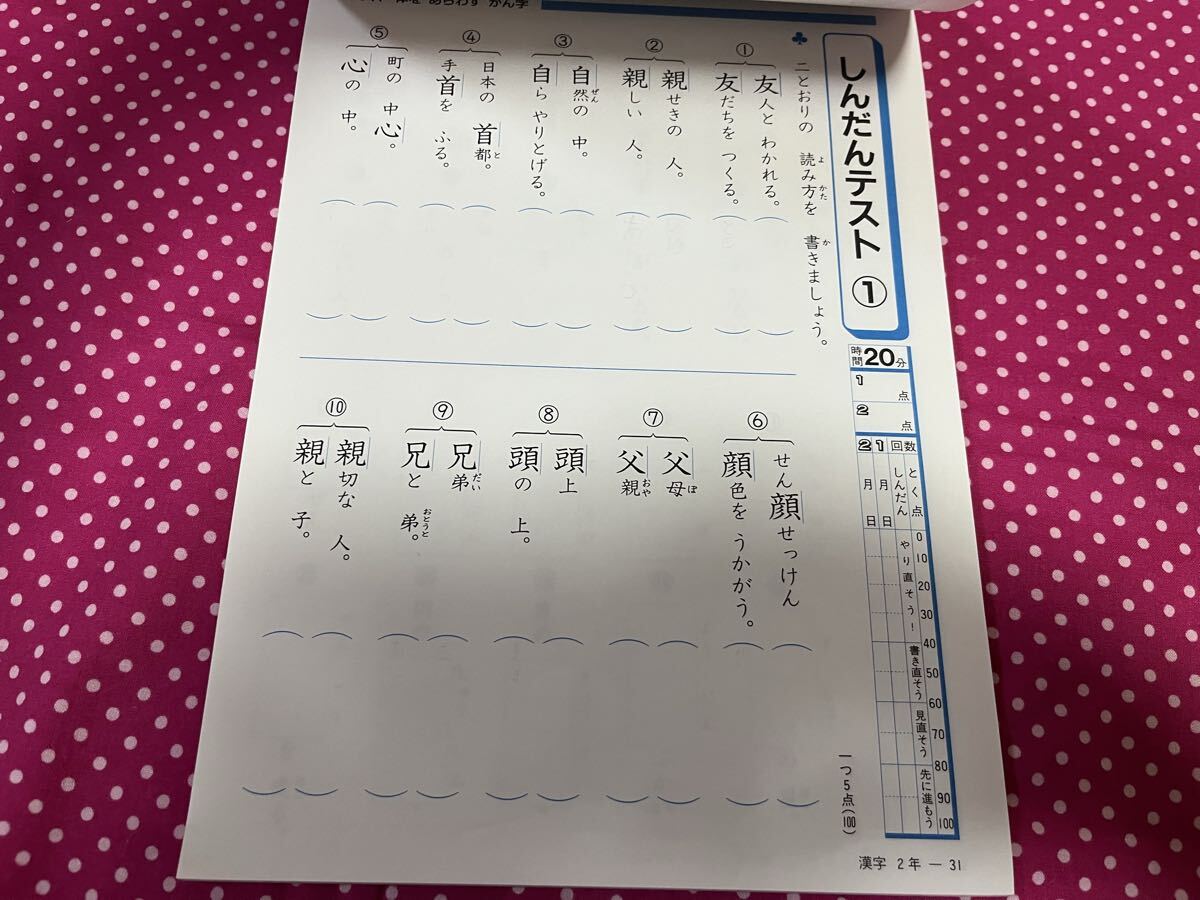 あらわす かん字
しんだんテスト ①
時間 20分
1 点
2 点
回数 1 2
月 日
月 日
とく点 0 10 20 30 40 50 60 70 80 90 100
しんだん やり直そう! 書き直そう 見直そう 先に進もう
♣ 二とおりの 読み方を 書きましょう。
よ かた か
一つ5点(100)
①
友人と わかれる。
友だちを つくる。
②
親せきの 人。
親しい 人。
③
自然の 中。
ぜん
自ら やりとげる。
④
日本の 首都。
と
手首を ふる。
⑤
町の 中心。
心の 中。
⑥
せん顔せっけん
顔色を うかがう。
⑦
父母
ぼ
父親
おや
⑧
頭上
頭の 上。
⑨
兄弟
だい
兄と 弟。
おとうと
⑩
親切な 人。
親と 子。
漢字 2年 ― 31